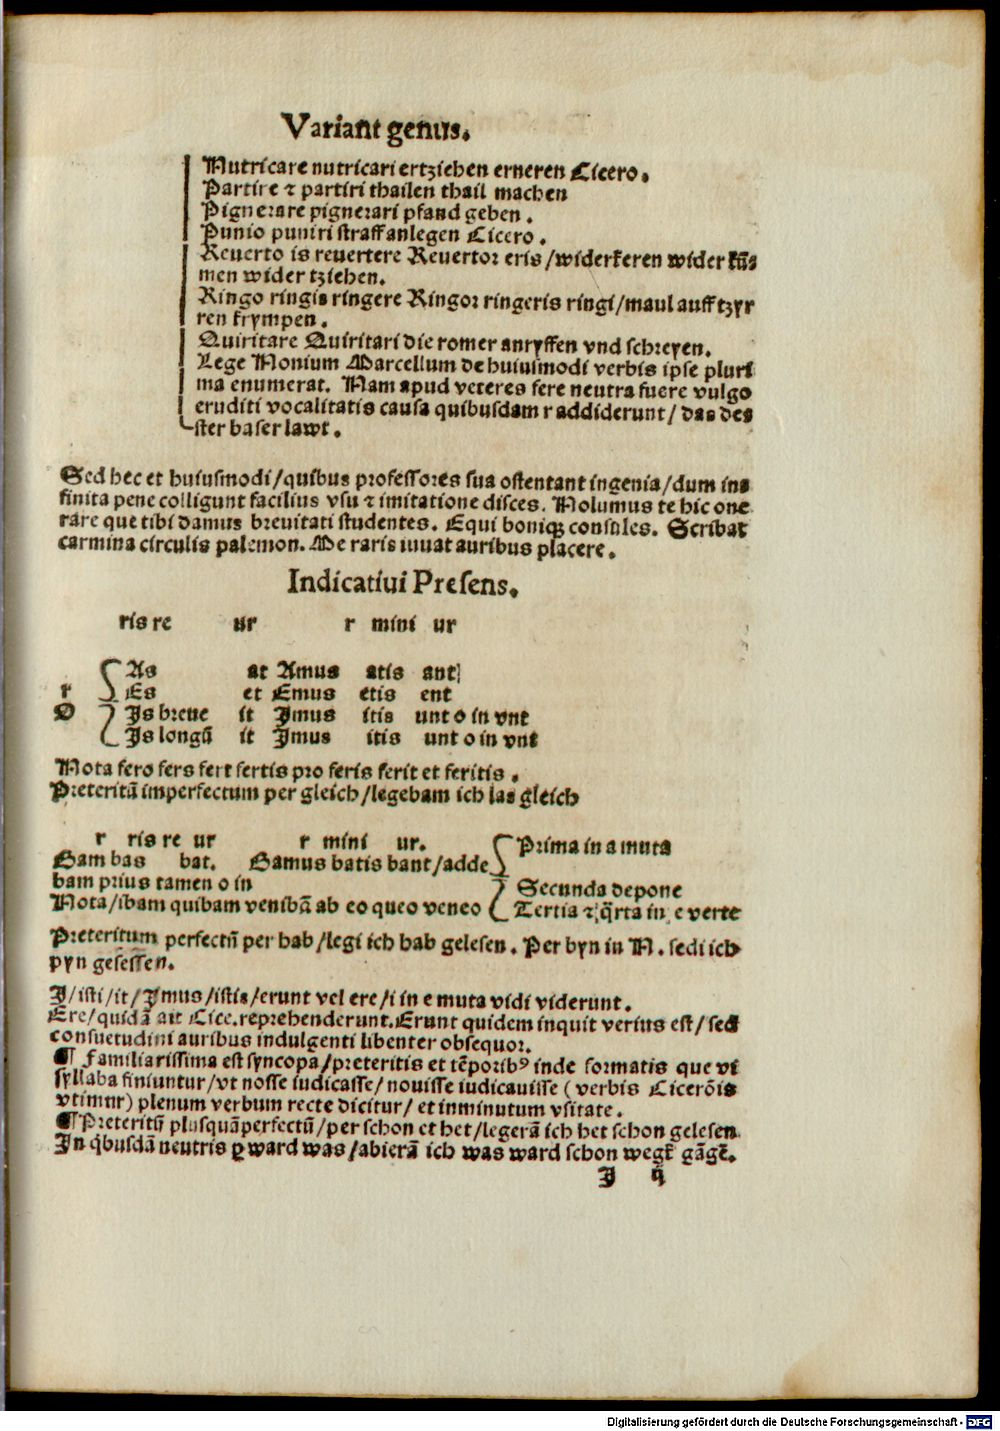 Variant genus.
Nutricare nutricari ertziehen erneren Cicero.
Partire ⁊ partiri thailen thail machen
Pignerare pignerari pfand geben.
Punio puniri straff anlegen Cicero.
Reuerto is reuertere Reuertor eris/widerkeren wider kūs
men wider tziehen.
Ringo ringis ringere Ringor ringeris ringi/maul auff tzyr
ren krympen.
Quiritare Quiritari die romer anryffen vnd schreyen.
Lege Nonium Marcellum de huiusmodi verbis ipse pluri
ma enumerat. Nam apud veteres fere neutra fuere vulgo
eruditi vocalitatis causa quibusdam r addiderunt/ das des
ster baser lawt.
Sed hec et huiusmodi/quibus professores sua ostentant ingenia/dum ins
finita pene colligunt facilius vsu ⁊ imitatione disces. Nolumus te hic one
rare que tibi damus breuitati studentes. Equi boniqꝫ consules. Scribat
carmina circulis palemon. Me raris iuuat auribus placere.
Indicatiui Presens.
ris re ur r mini ur
As at Amus atis ant
r Es et Emus etis ent
O Is breue it Imus itis unt o in vnt
Is longū it Imus itis unt o in vnt
Nota fero fers fert fertis pro feris ferit et feritis.
Preteritū imperfectum per gleich/legebam ich las gleich
r ris re ur r mini ur. Prima in a muta
Bam bas bat. Bamus batis bant/adde
bam prius tamen o in Secunda depone
Nota/ibam quibam venibā ab eo queo veneo Tertia ⁊ q̄rta in e verte
Preteritum perfectū per hab/legi ich hab gelesen. Per byn in N. sedi ich
pyn gesessen.
I/isti/it/Imus/istis/erunt vel ere/i in e muta vidi viderunt.
Ere/quidā ait Cice.reprehenderunt.Erunt quidem inquit verius est/sed
consuetudini auribus indulgenti libenter obsequor.
¶ Familiarissima est syncopa/preteritis et tēporibꝰ inde formatis que vi
syllaba finiuntur/vt nosse iudicasse/nouisse iudicauisse (verbis Cicerōis
vtimur) plenum verbum recte dicitur/ et inminutum vsitate.
¶ Preteritū plusquāperfectū/per schon et het/legerā ich het schon gelesen.
In q̄busdā neutris ꝑ ward was/abierā ich was ward schon wegk̄ gāgē.
I q̄
Digitalisierung gefördert durch die Deutsche Forschungsgemeinschaft - DFG